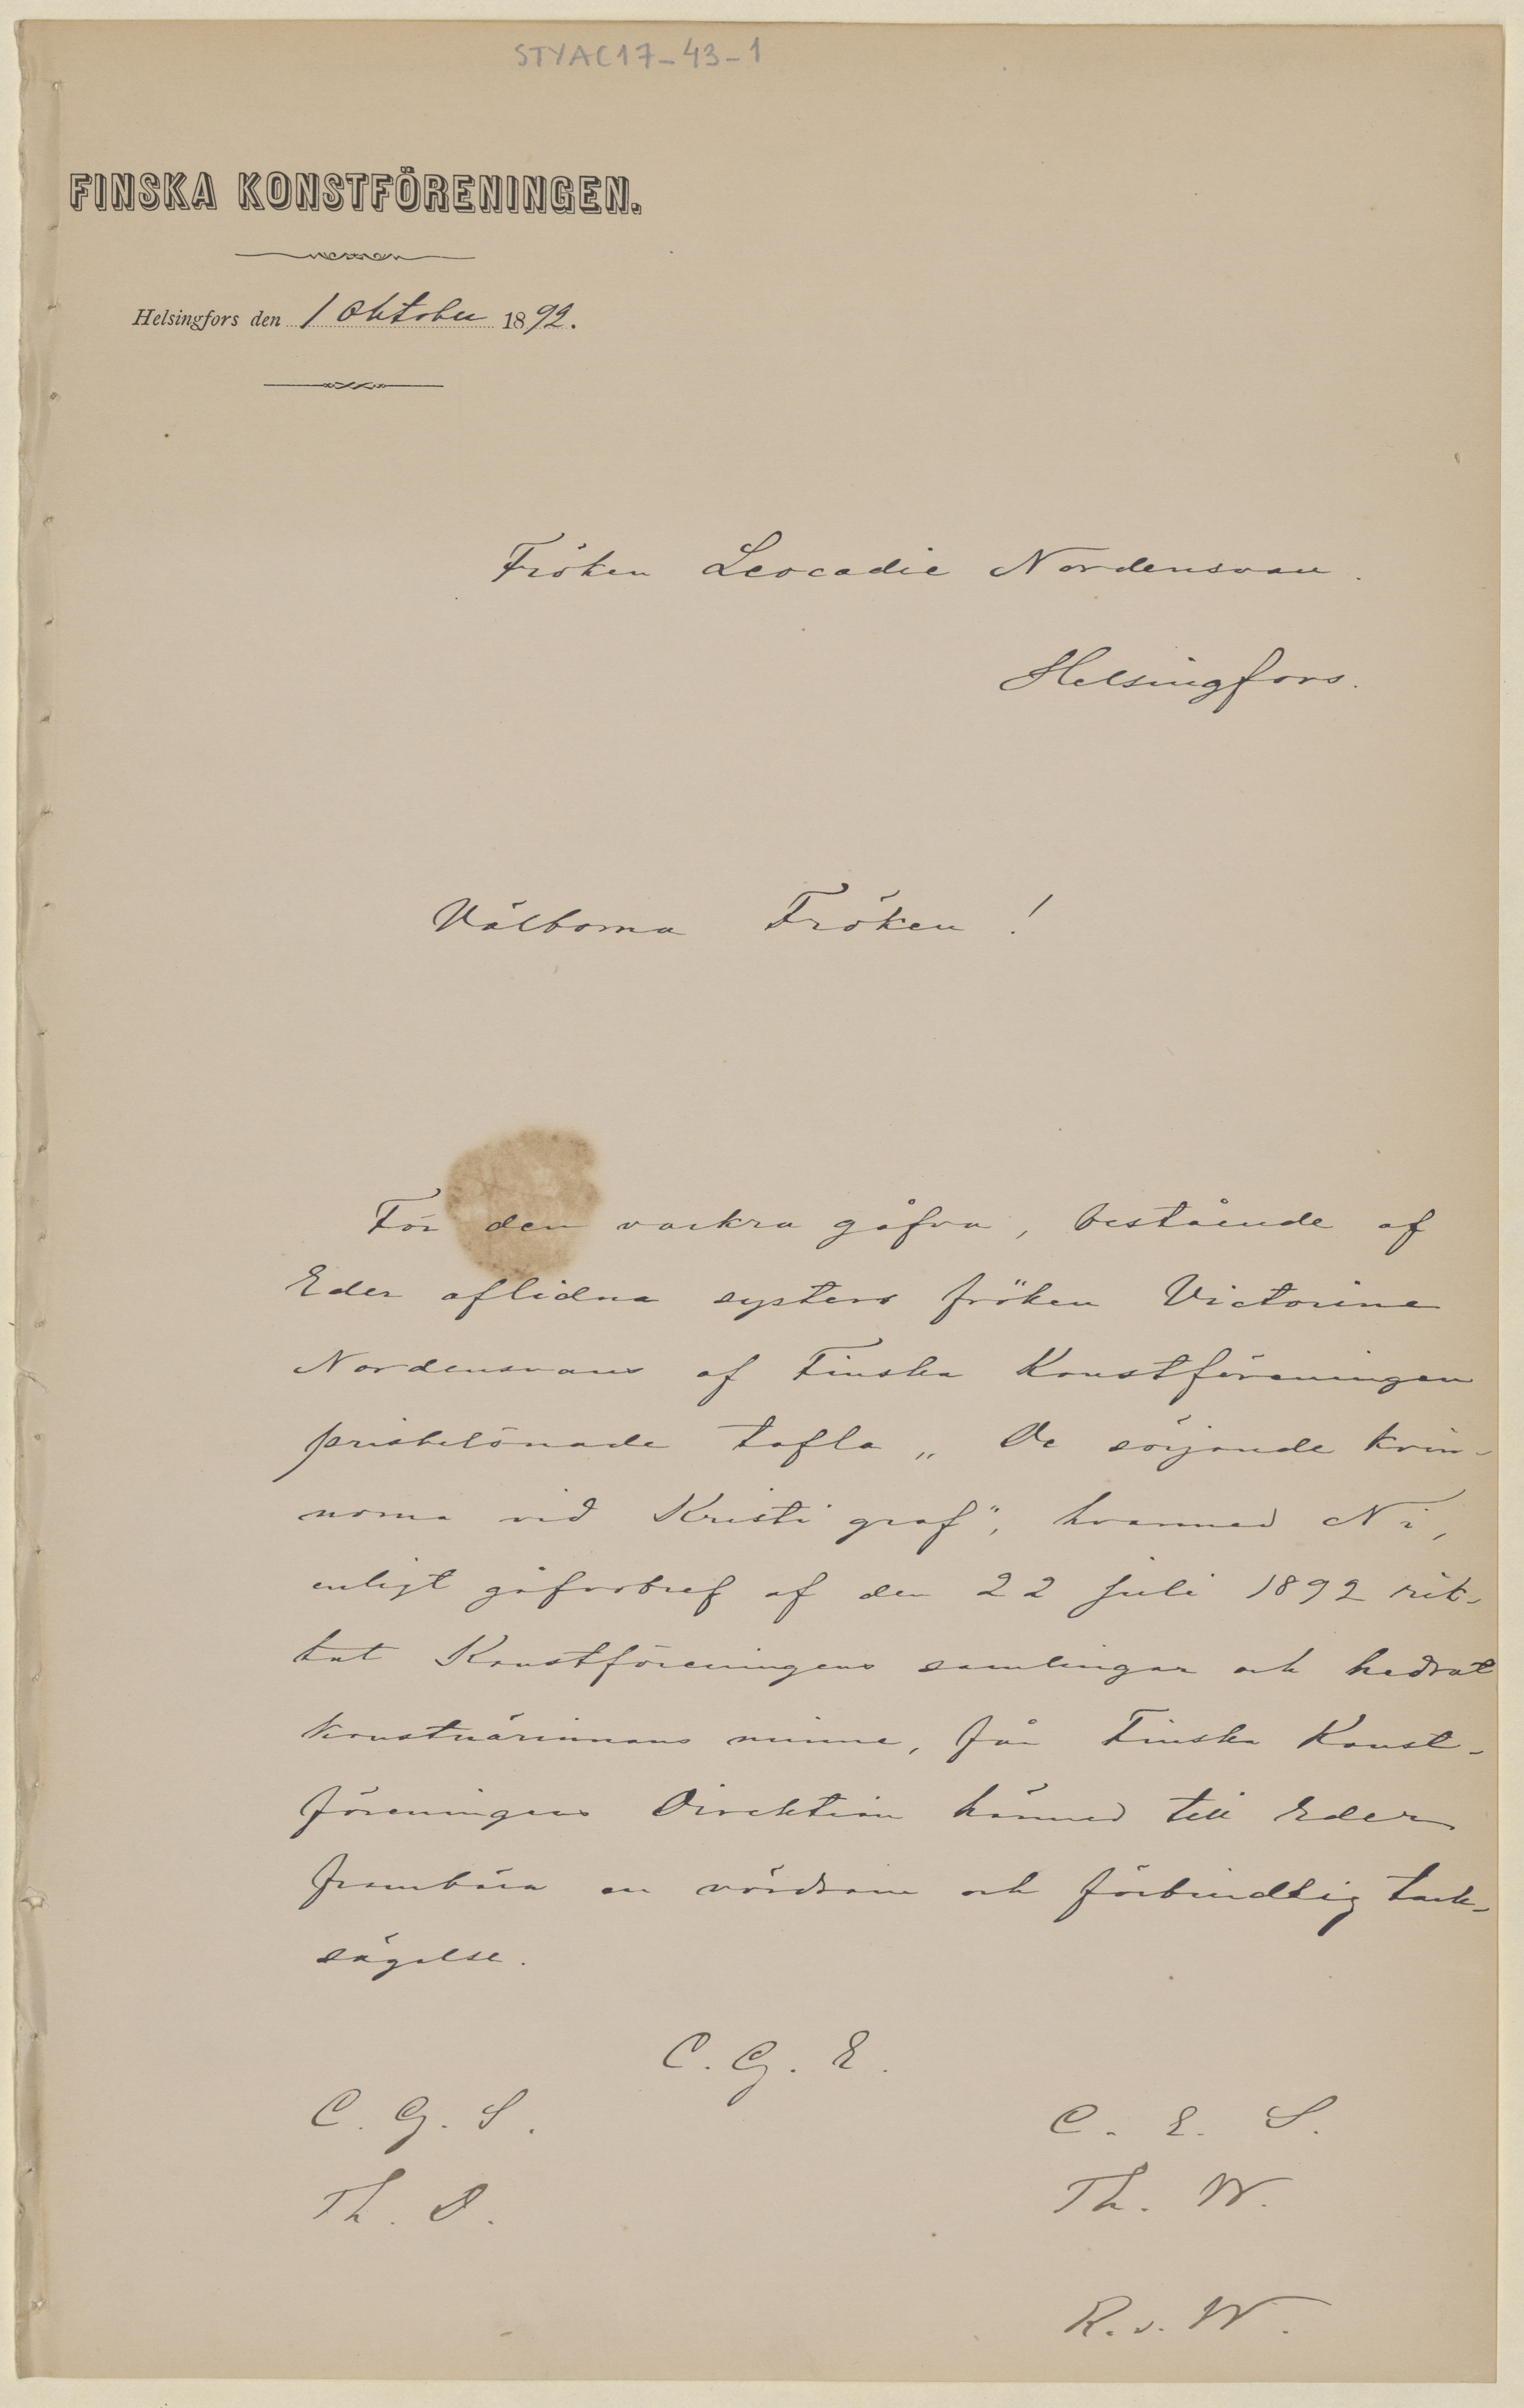 STYAC17-43-1
FINSKA KONSTFÖRENINGEN.
Helsingfors den 1 Oktober 1892.
Fröken Leocadie Nordensvan.
Helsingfors.
Välborna Fröken!
För den vackra gåfva, bestående af
Eder aflidna systers fröken Victorine
Nordensvans af Finska Konstföreningen
prisbelönade tafla „De sörjande kvin-
norna vid Kristi graf“, hvarmed Ni,
enligt gåfvobref af den 22 juli 1892 rik-
tat Konstföreningens samlingar och hedrat
konstnärinnans minne, får Finska Konst-
föreningens Direktion härmed till Eder
frambära en vördsam och förbindlig tack-
sägelse.
C. G. E.
C. G. S. C. E. S.
Th. D. Th. W.
R. v. W.